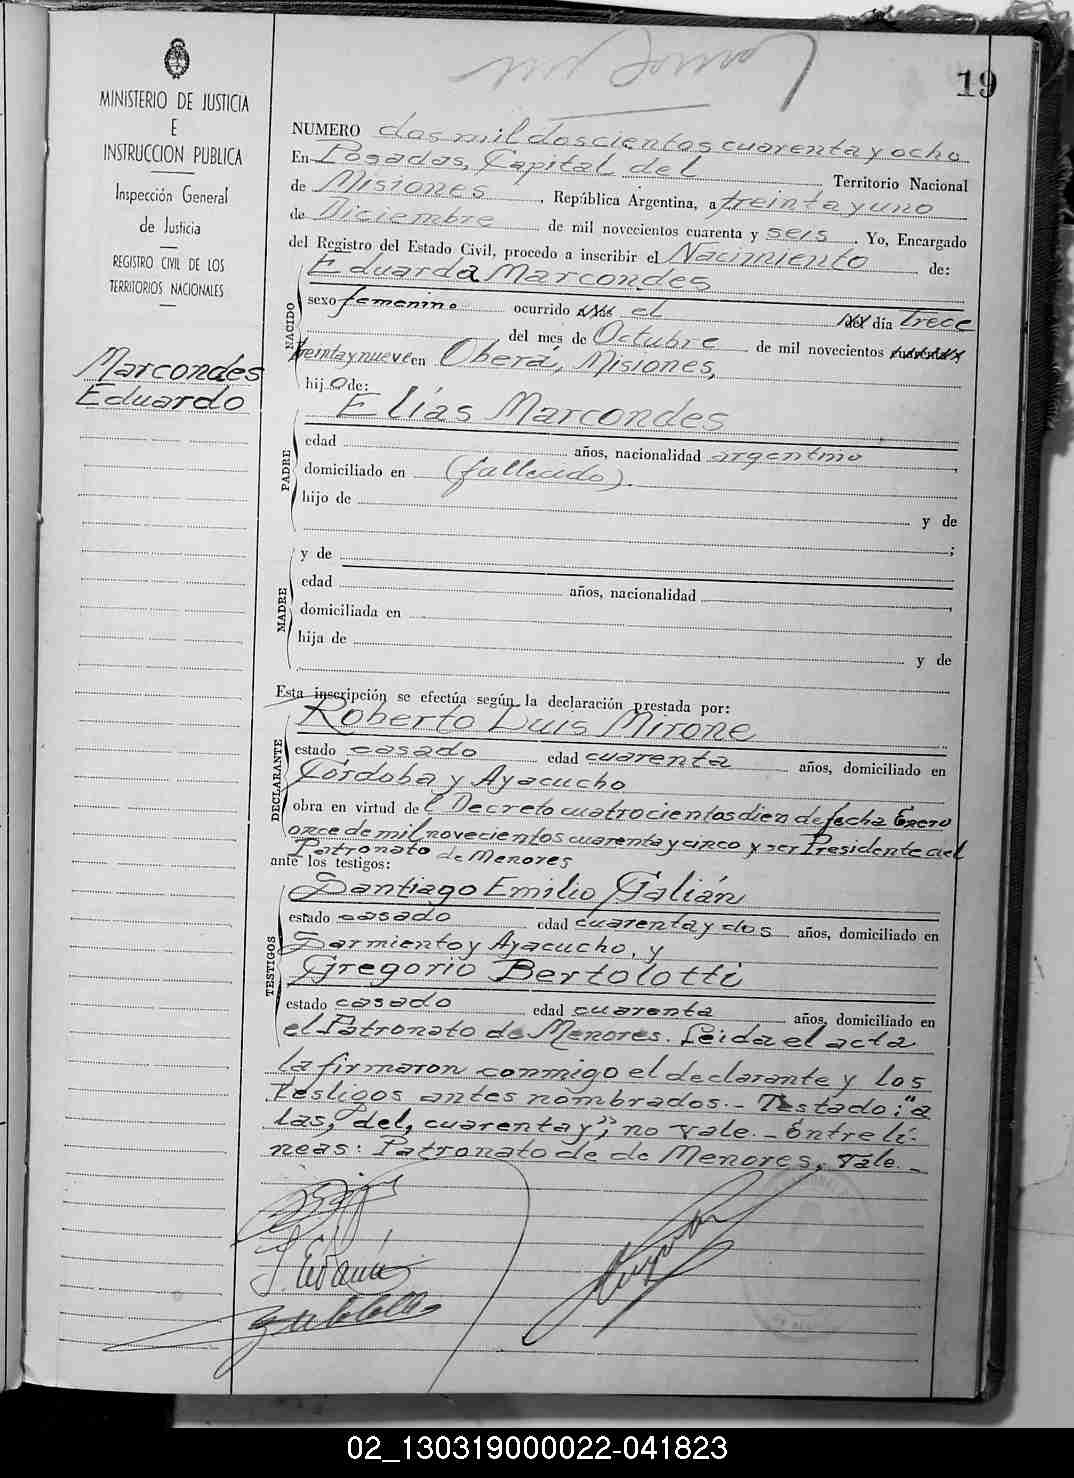 19
MINISTERIO DE JUSTICIA
E
INSTRUCCION PUBLICA
Inspección General
de Justicia
REGISTRO CIVIL DE LOS
TERRITORIOS NACIONALES
Marcondes
Eduardo
NUMERO dos mil doscientos cuarenta y ocho
En Posadas, Capital del Territorio Nacional
de Misiones, República Argentina, a treinta y uno
de Diciembre de mil novecientos cuarenta y seis. Yo, Encargado
del Registro del Estado Civil, procedo a inscribir el Nacimiento de:
NACIDO
Eduarda Marcondes
sexo femenino ocurrido el día trece
del mes de Octubre de mil novecientos
treinta y nueve en Oberá, Misiones,
hijo de:
PADRE
Elías Marcondes
edad años, nacionalidad argentino
domiciliado en (fallecido).
hijo de y de
;
MADRE
y de
edad años, nacionalidad
domiciliada en
hija de y de
Esta inscripción se efectúa según la declaración prestada por:
DECLARANTE
Roberto Luis Mirone
estado casado edad cuarenta años, domiciliado en
Córdoba y Ayacucho
obra en virtud del Decreto cuatrocientos diez de fecha Enero
once de mil novecientos cuarenta y cinco y ser Presidente del
Patronato de Menores
ante los testigos:
TESTIGOS
Santiago Emilio Galián
estado casado edad cuarenta y dos años, domiciliado en
Sarmiento y Ayacucho, y
Gregorio Bertolotti
estado casado edad cuarenta años, domiciliado en
el Patronato de Menores. Leida el acta
la firmaron conmigo el declarante y los
testigos antes nombrados._ Testado: "a
las, del, cuarenta y", no vale._ Entre lí-
neas: Patronato de de Menores, Vale._
02_130319000022-041823